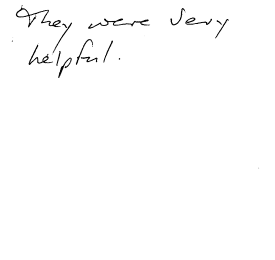 They were very
helpful.